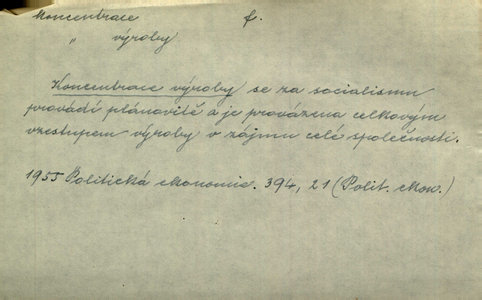 Koncentrace f.
" výroby
Koncentrace výroby se za socialismu
provádí plánovitě a je provázena celkovým
vzestupem výroby v zájmu celé společnosti.
1955 Politická ekonomie. 394, 21 (Polit. ekon.)